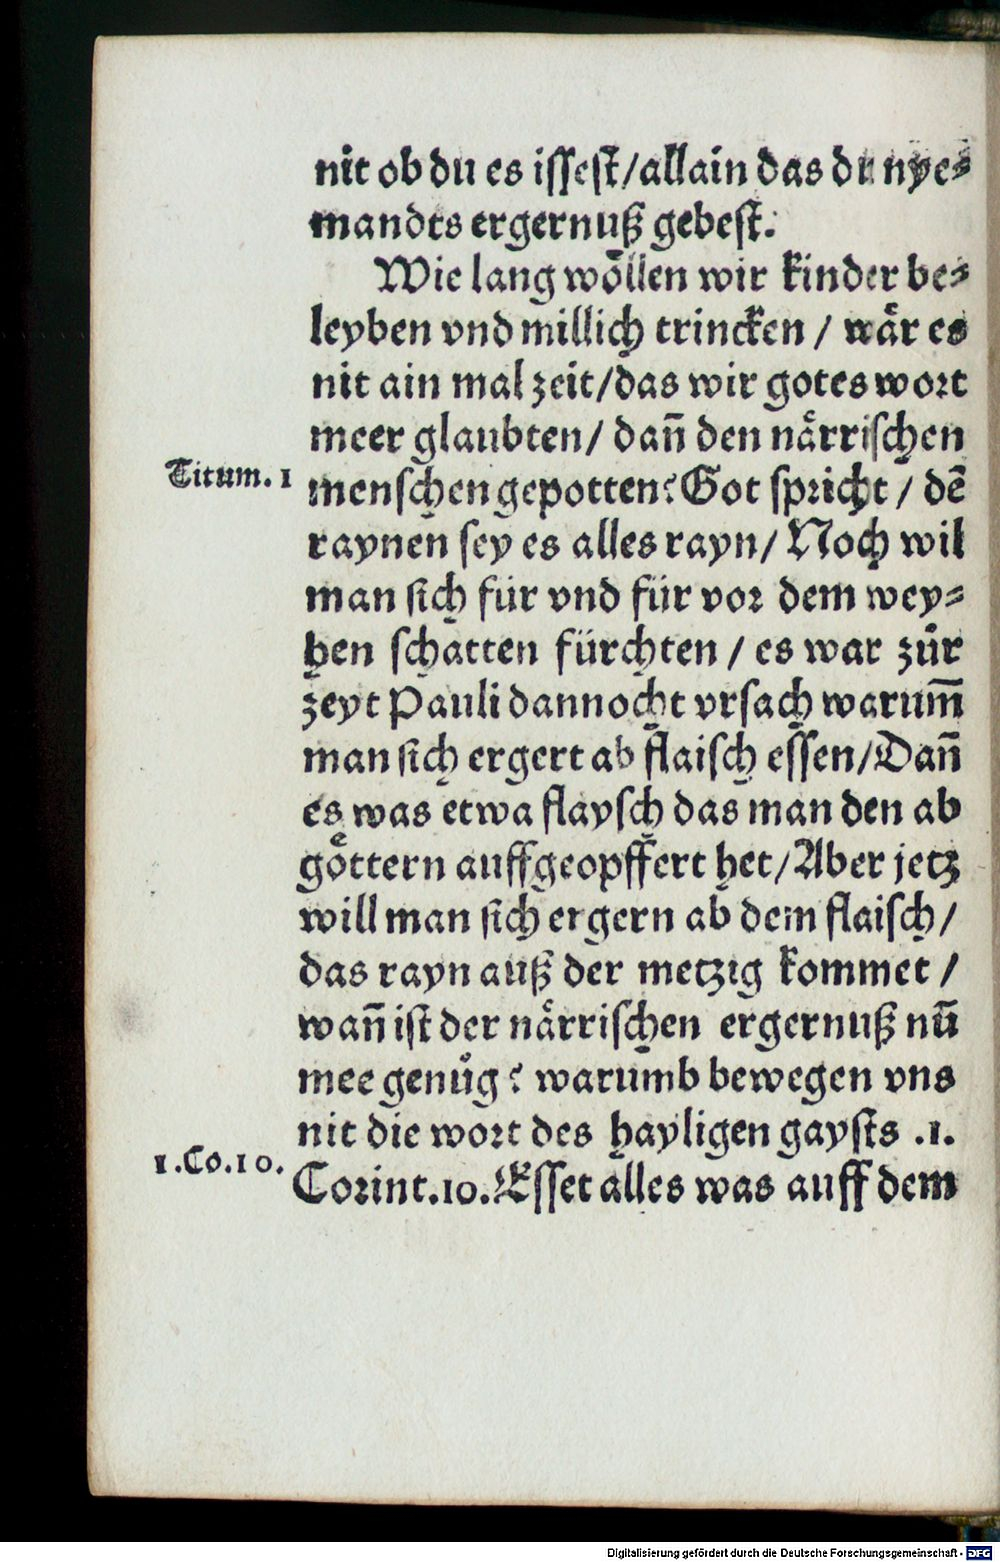 nit ob du es issest/allain das du nye⸗
mandts ergernuß gebest.
Wie lang wöllen wir kinder be⸗
leyben vnd millich trincken / wår es
nit ain mal zeit/das wir gotes wort
meer glaubten/ dañ den nårrischen
Titum. 1
menschen gepotten? Got spricht / dẽ
raynen sey es alles rayn/ Noch wil
man sich für vnd für vor dem wey⸗
hen schatten fürchten / es war zůr
zeyt Pauli dannocht vrsach warum̃
man sich ergert ab flaisch essen/Dañ
es was etwa flaysch das man den ab
göttern auffgeopffert het/Aber jetz
will man sich ergern ab dem flaisch/
das rayn auß der metzig kommet /
wañ ist der nårrischen ergernuß nũ
mee genůg? warumb bewegen vns
nit die wort des hayligen gaysts .1.
1.Co.10.
Corint.10.Esset alles was auff dem
Digitalisierung gefördert durch die Deutsche Forschungsgemeinschaft - DFG